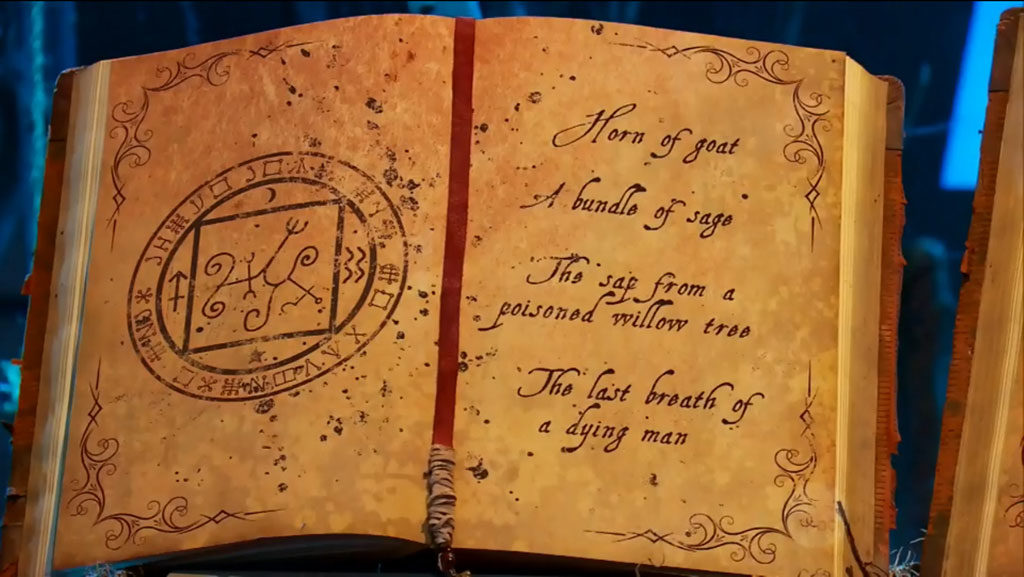 Horn of goat
A bundle of sage
The sap from a
poisoned willow tree
The last breath of
a dying man